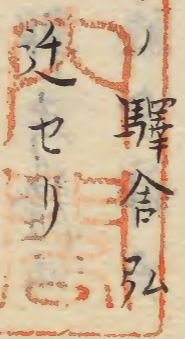 ノ驛舎弘
迁セリ